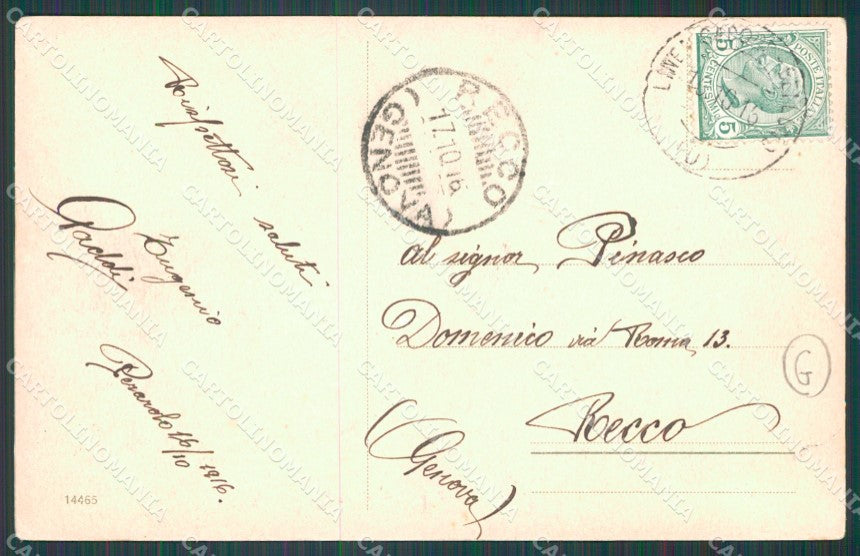 Rispettosi saluti
Eugenio
Gaddi
16/10 1916.
14465
RECCO
17.10.16
(GENOVA)
POSTE ITALIANE
CENTESIMI
5 5
al signor Pinasco
Domenico via Roma, 13.
Recco
(Genova)
G
CARTOLINOMANIA